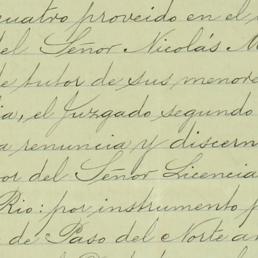 cuatro proveido en el
del Señor Nicolás M
de tutor de sus menore
ia, el Juzgado segundo
a renuncia y discern
or del Señor Licencia
Rio: por instrumento p
de Paso del Norte a